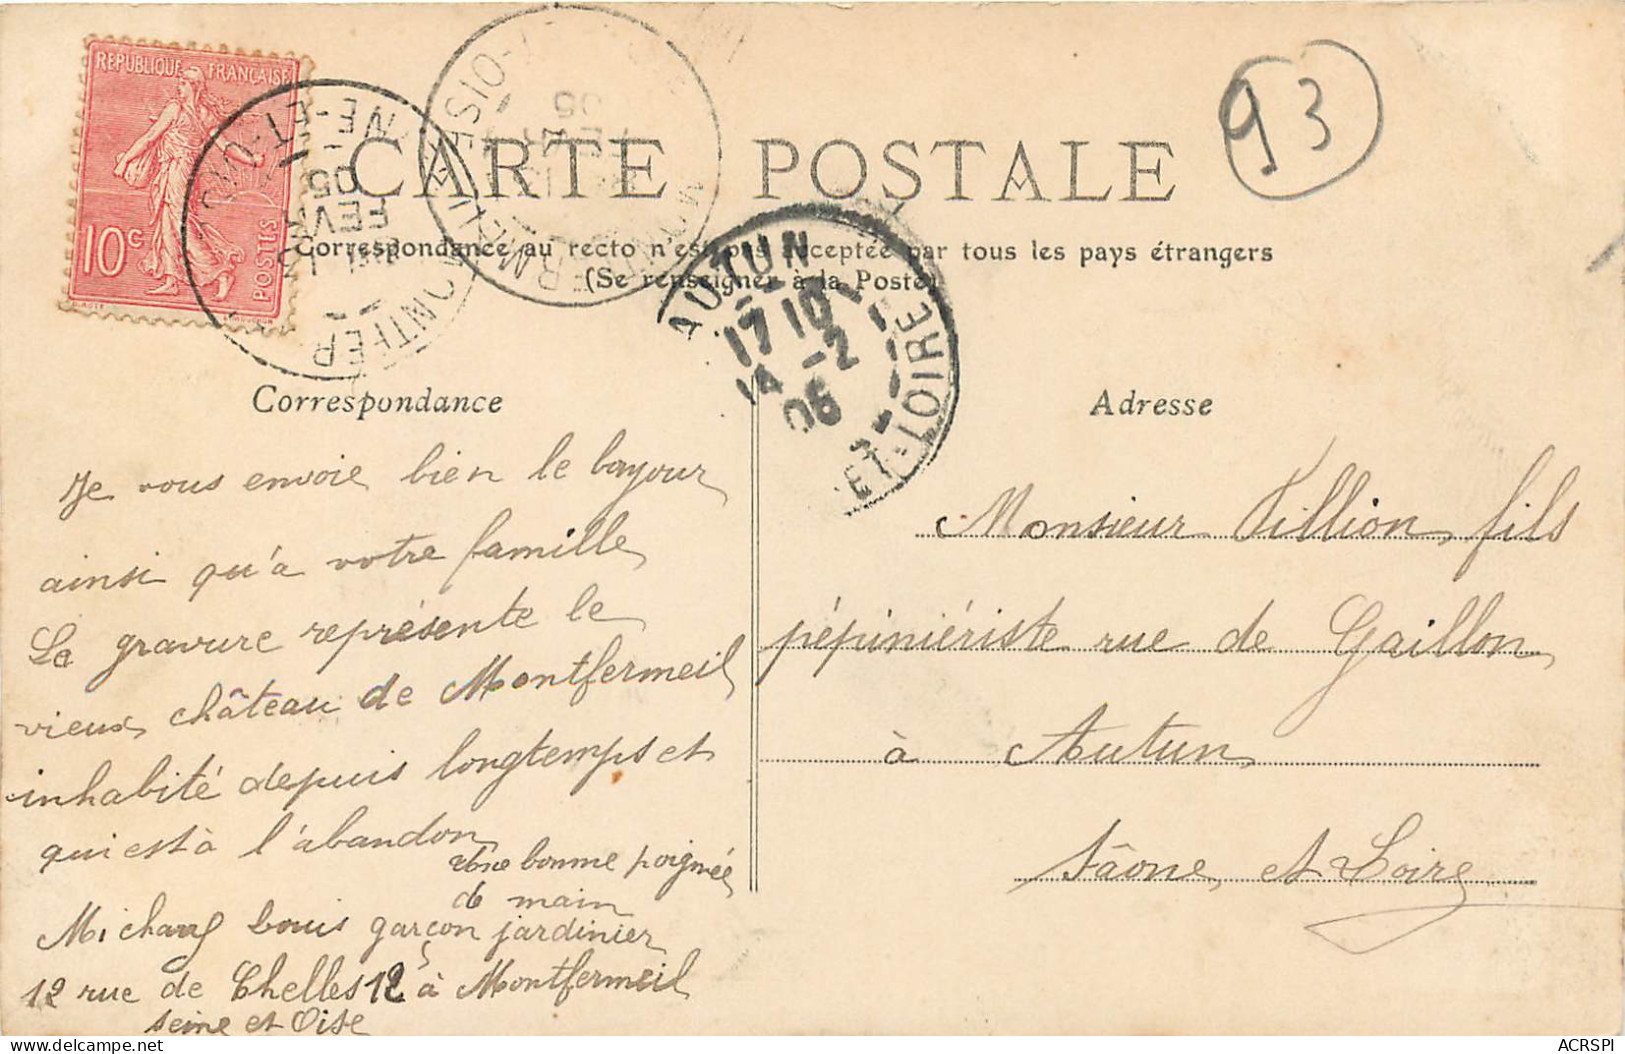 RÉPUBLIQUE FRANÇAISE
10c
POSTES
93
CARTE POSTALE
Correspondance au recto n'est pas acceptée par tous les pays étrangers
(Se renseigner à la Poste)
AUTUN
17 10
14 -2
05
ET-LOIRE
FEVR
05
Correspondance
Je vous envoie bien le bonjour
ainsi qu'à votre famille
La gravure représente le
vieux château de Montfermeil
inhabité depuis longtemps et
qui est à l'abandon
Une bonne poignée
de main
Louis garçon jardinier
12 rue de Chelles 12 à Montfermeil
seine et Oise
Adresse
Monsieur Villion fils
pépiniériste rue de Gaillon
à Autun
Sâone et Loire
ACRSPI